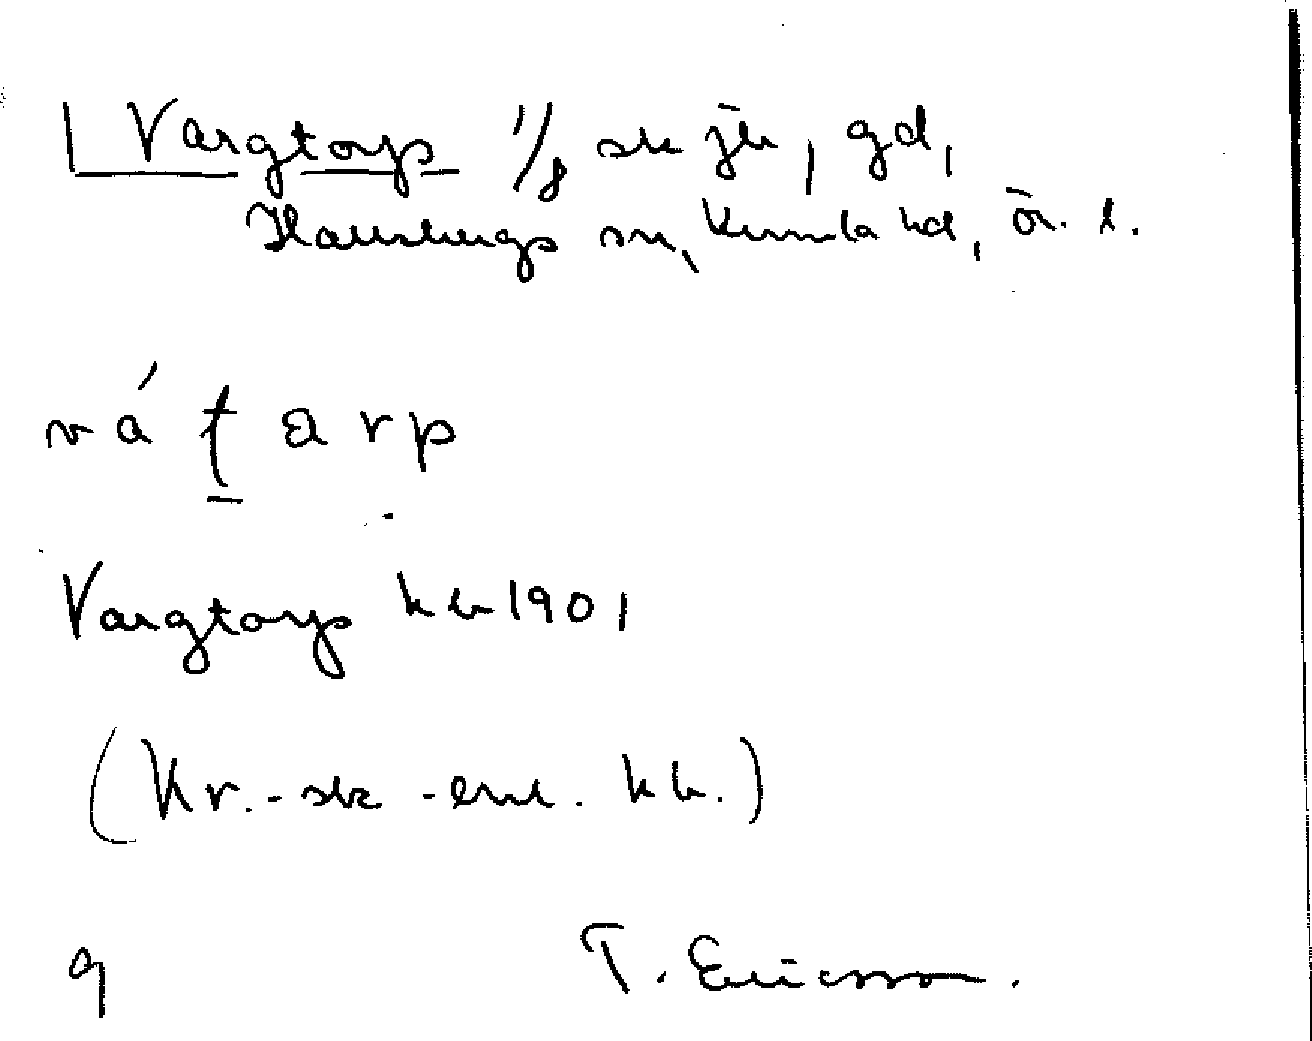 Vargtorp 1/8 sk jb, gd,
Hallsbergs sn, Kumla hd, Ör. l.
Vargtorp kb 1901
(Kr.-sk -enl. kb.)
9 T. Ericsson.